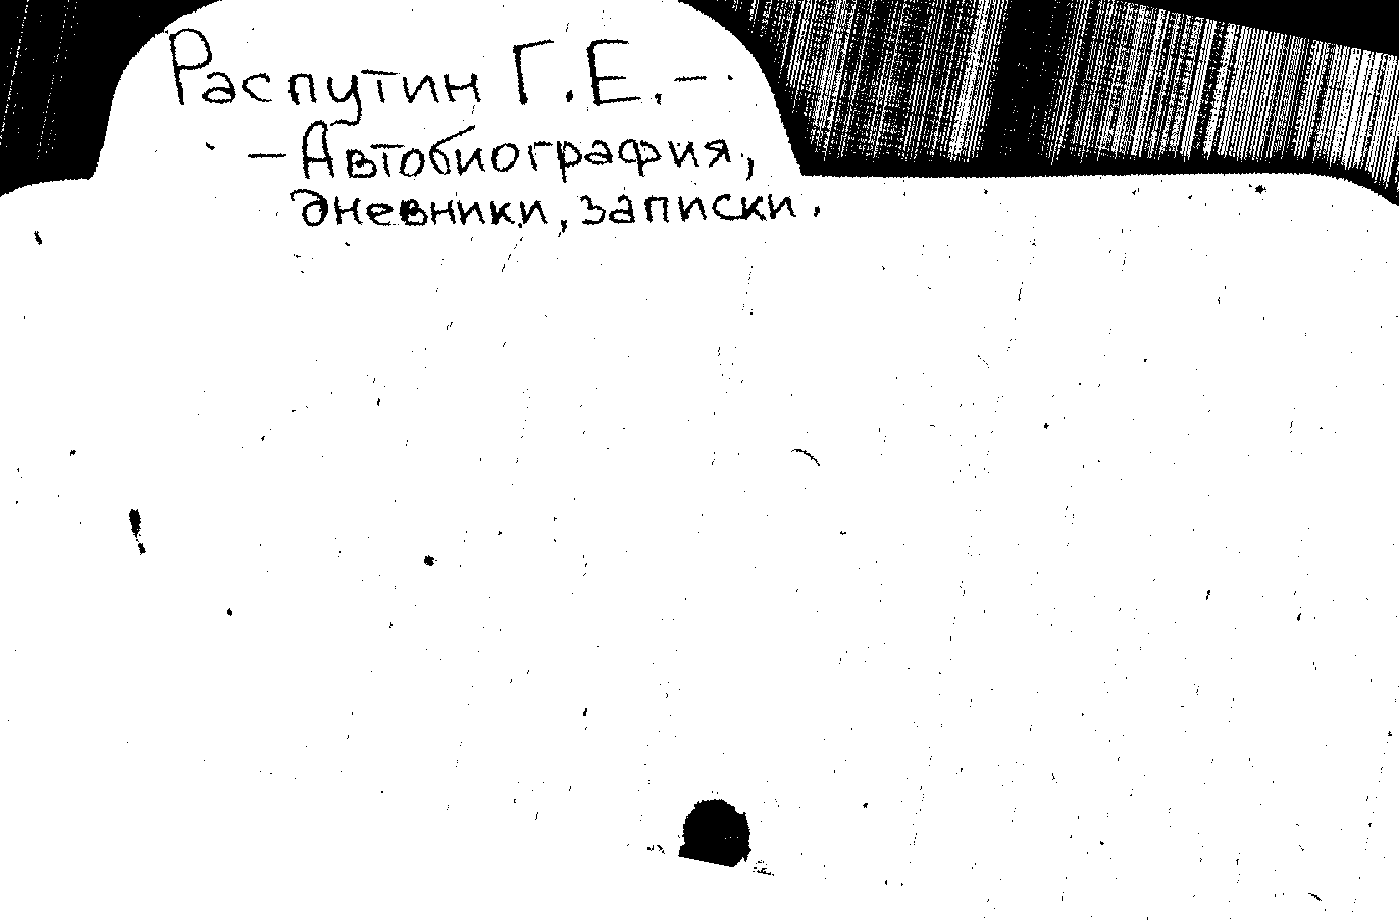 Распутин Г.Е. -
- Автобиография,
дневники, записки.